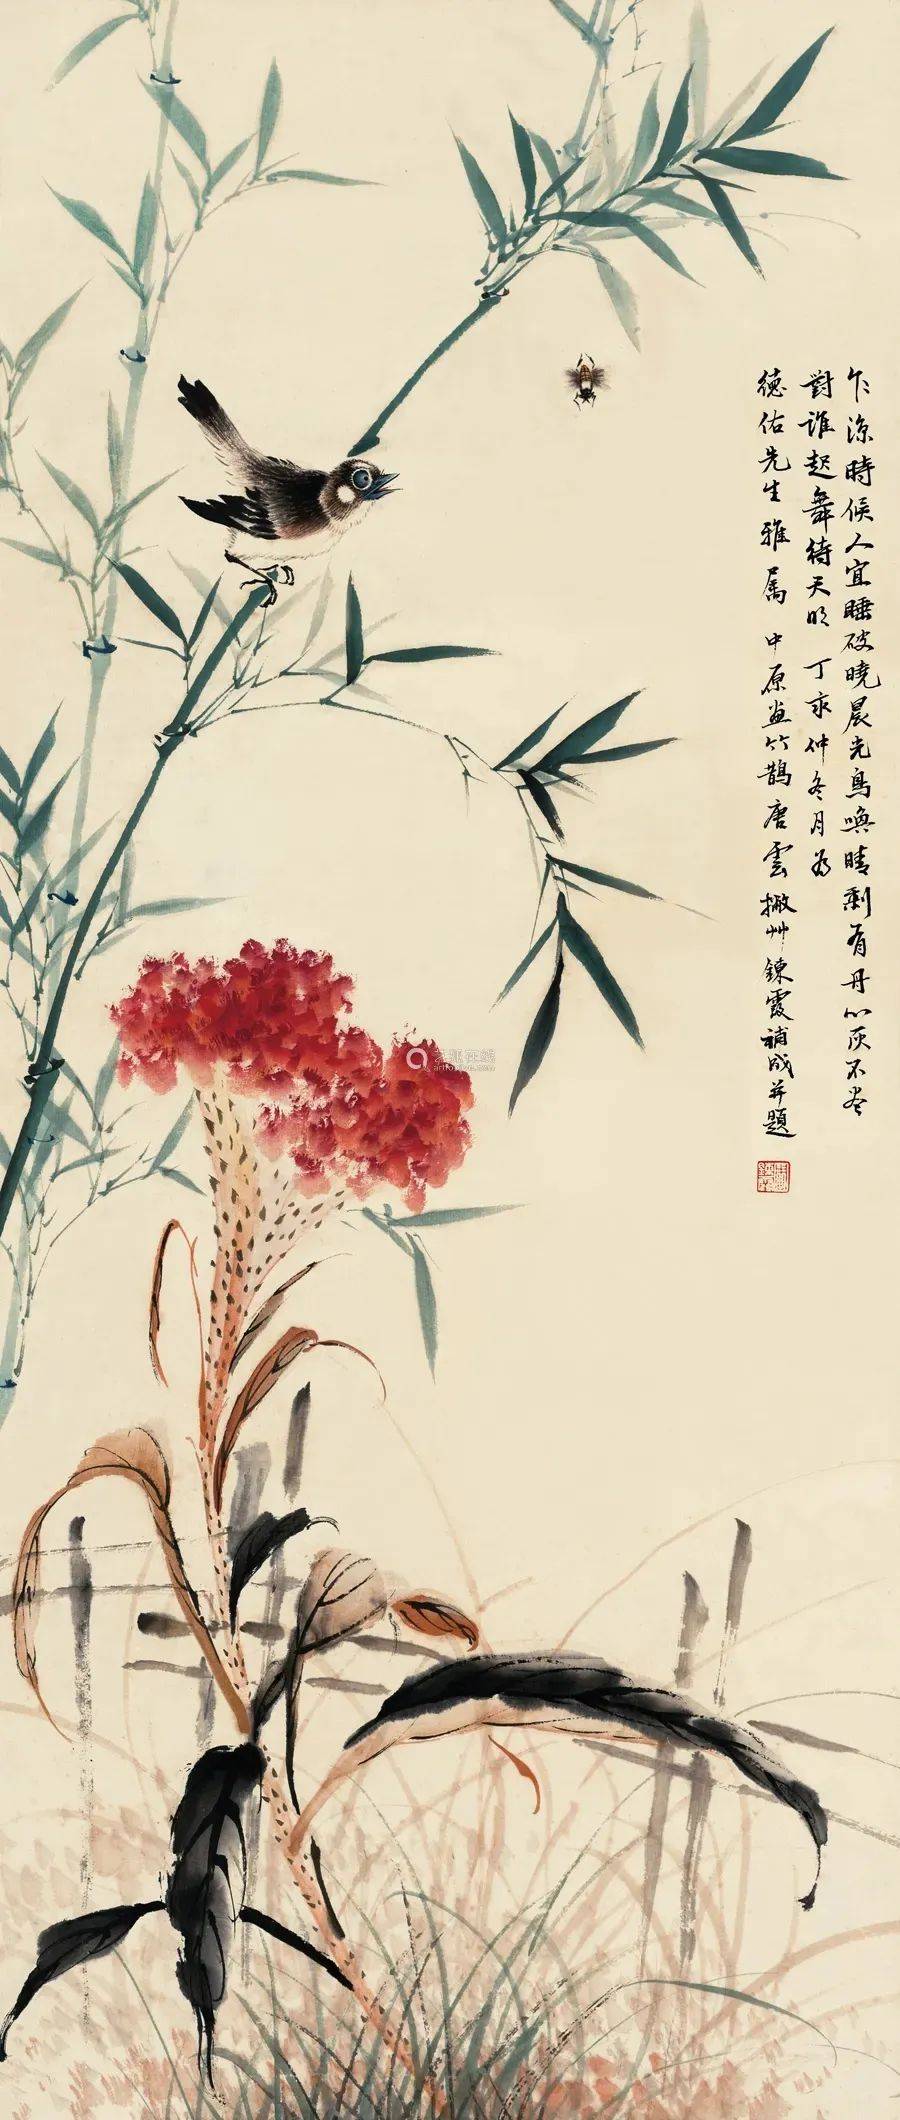 乍涼時候人宜睡破曉晨光鳥喚晴剩有丹心灰不盡
對誰起舞待天明 丁亥仲冬月為
德佑先生雅屬 中原畫竹鵲唐雲撇艸鍊霞補成並題
艺狐在线
artfoxlive.com